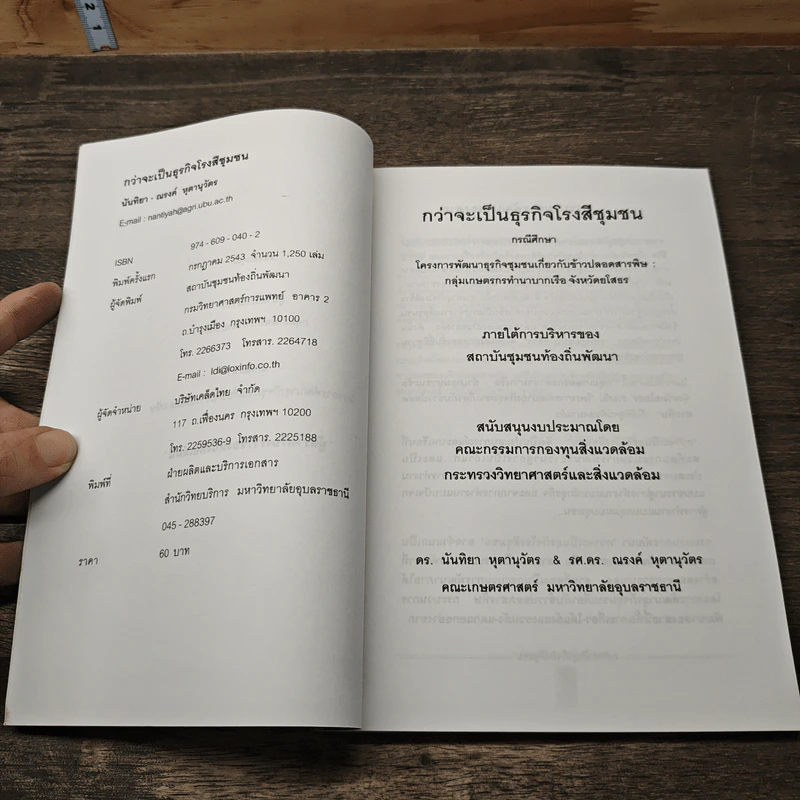 2
1
กว่าจะเป็นธุรกิจโรงสีชุมชน
นันทิยา - ณรงค์ หุตานุวัตร
E-mail : nantiyah@agri.ubu.ac.th
ISBN 974 - 609 - 040 - 2
พิมพ์ครั้งแรก กรกฎาคม 2543 จำนวน 1,250 เล่ม
ผู้จัดพิมพ์ สถาบันชุมชนท้องถิ่นพัฒนา
กรมวิทยาศาสตร์การแพทย์ อาคาร 2
ถ.บำรุงเมือง กรุงเทพฯ 10100
โทร. 2266373 โทรสาร. 2264718
E-mail : ldi@loxinfo.co.th
ผู้จัดจำหน่าย บริษัทเคล็ดไทย จำกัด
117 ถ.เฟื่องนคร กรุงเทพฯ 10200
โทร. 2259536-9 โทรสาร. 2225188
พิมพ์ที่ ฝ่ายผลิตและบริการเอกสาร
สำนักวิทยบริการ มหาวิทยาลัยอุบลราชธานี
045 - 288397
ราคา 60 บาท
กว่าจะเป็นธุรกิจโรงสีชุมชน
กรณีศึกษา
โครงการพัฒนาธุรกิจชุมชนเกี่ยวกับข้าวปลอดสารพิษ :
กลุ่มเกษตรกรทำนาบากเรือ จังหวัดยโสธร
ภายใต้การบริหารของ
สถาบันชุมชนท้องถิ่นพัฒนา
สนับสนุนงบประมาณโดย
คณะกรรมการกองทุนสิ่งแวดล้อม
กระทรวงวิทยาศาสตร์และสิ่งแวดล้อม
ดร. นันทิยา หุตานุวัตร & รศ.ดร. ณรงค์ หุตานุวัตร
คณะเกษตรศาสตร์ มหาวิทยาลัยอุบลราชธานี